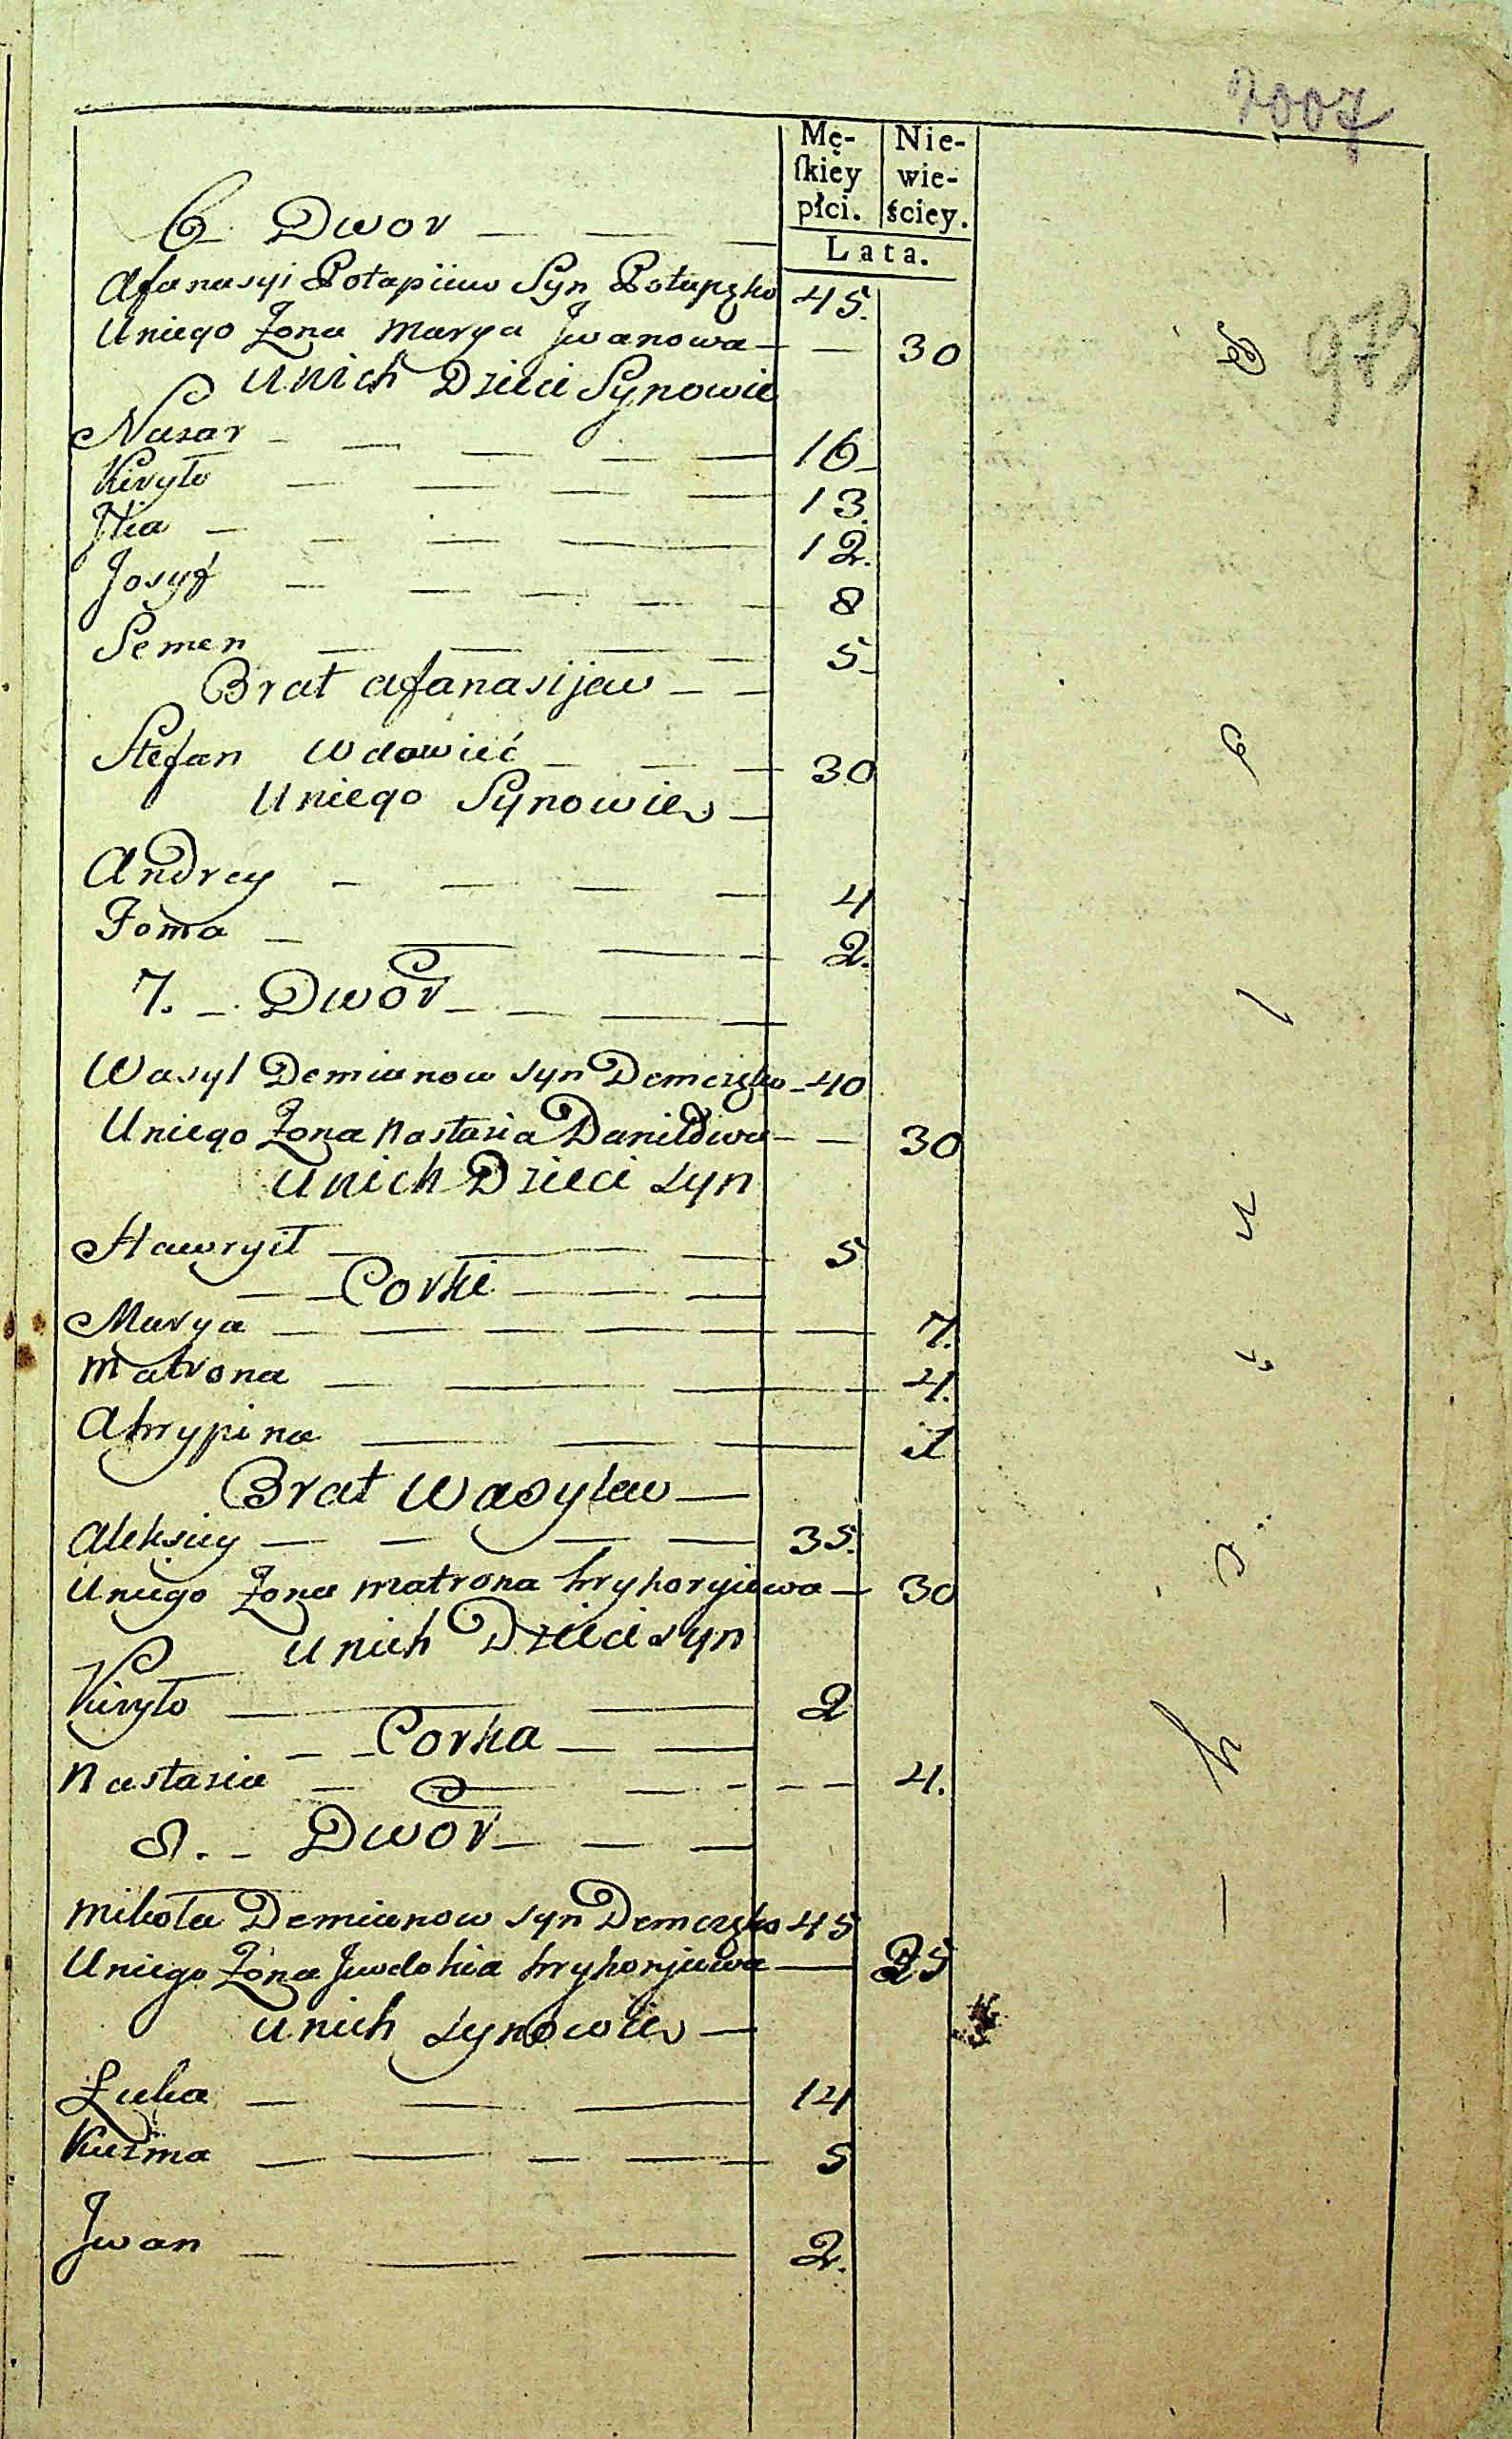 2007
Mę-
ſkiey
płci.
Nie-
wie-
ściey.
Lata.
973
6. Dwor
Afanasyi Potapiiew Syn Potapęko 45.
Uniego Zona Marya Jwanowa 30
Unich Dzieci Synowie
Nazar 16
Kiryło 13.
Jlia 12.
Josyf 8
Semen 5
Brat Afanasijew
Stefan Wdowieć 30
Uniego Synowie
Andrey 4
Foma 2.
7. Dwor
Wasyl Demianow syn Demczęko 40
Uniego Zona Nastazia Daniłowa 30
Unich Dzieci syn
Hawrył 5
Corki
Marya 7.
Matrona 4.
Ahrypina 1
Brat Wasylew
Aleksiey 35.
Uniego Zona Matrona hryhoryiewa 30
Unich Dzieci syn
Kiryło 2
Corka
Nastazia 4.
8. Dwor
Mikoła Demianow syn Demczęko 45
Uniego Zona Jwdokia hryhorjewa 35
Unich synowie
Łuka 14
Kuzma 5
Jwan 2.